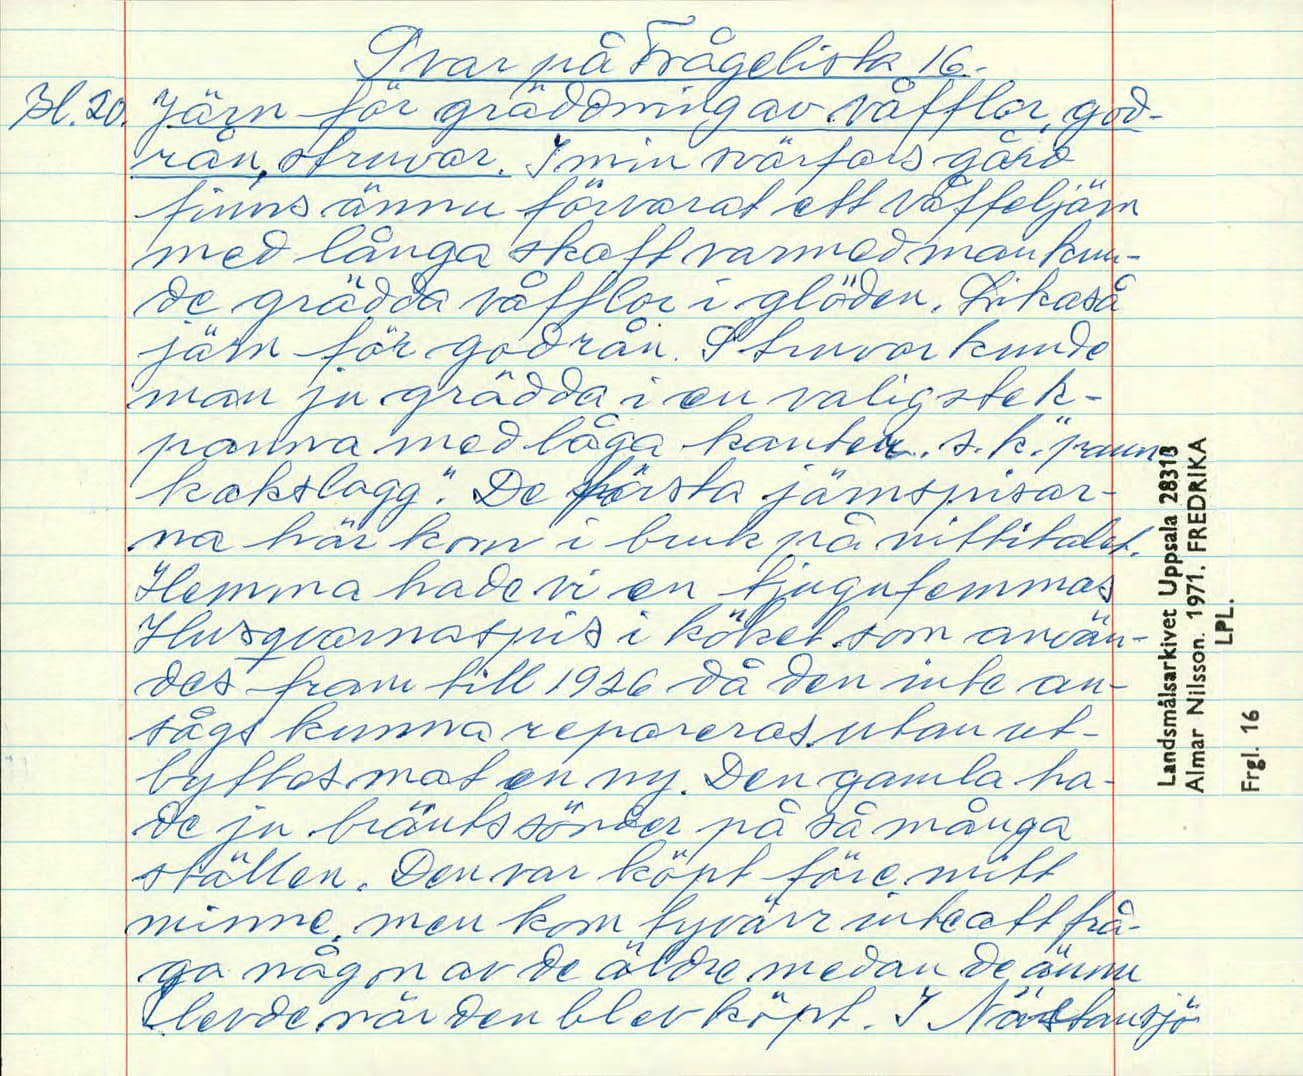 Svar på Frågelista 16.
Kl. 20. Järn för gräddning av våfflor, god-
rån, struvor. I min svärfars gård
finns ännu förvarat ett våffeljärn
med långa skaft varmed man kun-
de grädda våfflor i glöden. Likaså
järn för godrån. Struvor kunde
man ju grädda i en valig stek-
panna med låga kanter. s.k. "pann
kakslagg". De första järnspisar-
na här kom i bruk på nittitalet.
Hemma hade vi en tjugufemmas
Husqvarnaspis i köket som använ-
des fram till 1926 då den inte an-
sågs kunna repareras utan ut-
byttes mot en ny. Den gamla ha-
de ju bränts sönder på så många
ställen. Den var köpt före mitt
minne, men kom tyvärr inte att frå-
ga någon av de äldre medan de ännu
levde, när den blev köpt. I Nästansjö
Landsmålsarkivet Uppsala 28313
Almar Nilsson. 1971. FREDRIKA
LPL.
Frgl. 16